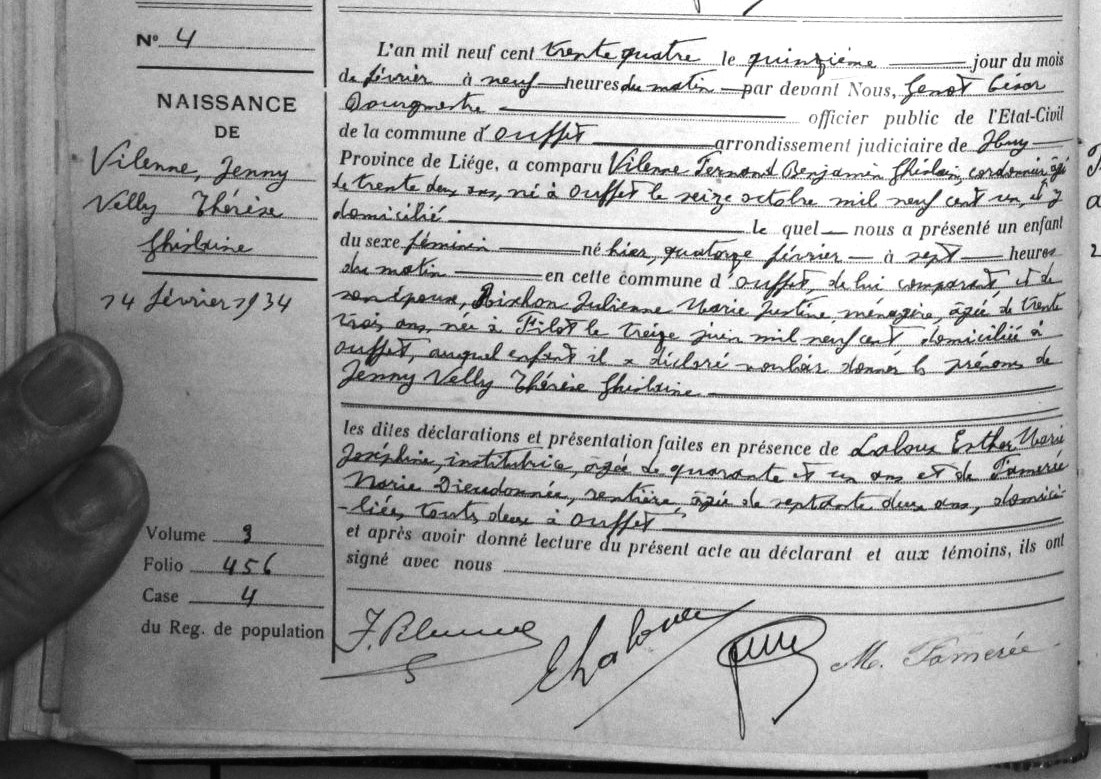 N° 4
NAISSANCE
DE
Vilenne, Jenny
Nelly Thérèse
Ghislaine
14 février 1934
Volume 9
Folio 456
Case 4
du Reg. de population
L'an mil neuf cent trente quatre le quinzième jour du mois
de février à neuf heures du matin par devant Nous, Genot César
Bourgmestre officier public de l'Etat-Civil
de la commune d'Ouffet arrondissement judiciaire de Huy
Province de Liége, a comparu Vilenne Fernand Benjamin Ghislain, cordonnier âgé
de trente deux ans, né à Ouffet le seize octobre mil neuf cent un, et y
domicilié le quel nous a présenté un enfant
du sexe féminin né hier, quatorze février à sept heures
du matin en cette commune d'Ouffet, de lui comparant et de
son épouse, Rixhon Julienne Marie Justine, ménagère, âgée de trente
trois ans, née à Filot le treize juin mil neuf cent domiciliée à
Ouffet, auquel enfant il a déclaré vouloir donner les prénoms de
Jenny Nelly Thérèse Ghislaine
les dites déclarations et présentation faites en présence de Laloux Esther Marie
Joséphine, institutrice, âgée de quarante et un ans et de Famerée
Marie Dieudonnée, rentière, âgée de septante deux ans, domici-
-liées toutes deux à Ouffet
et après avoir donné lecture du présent acte au déclarant et aux témoins, ils ont
signé avec nous
E Laloux
M. Famerée